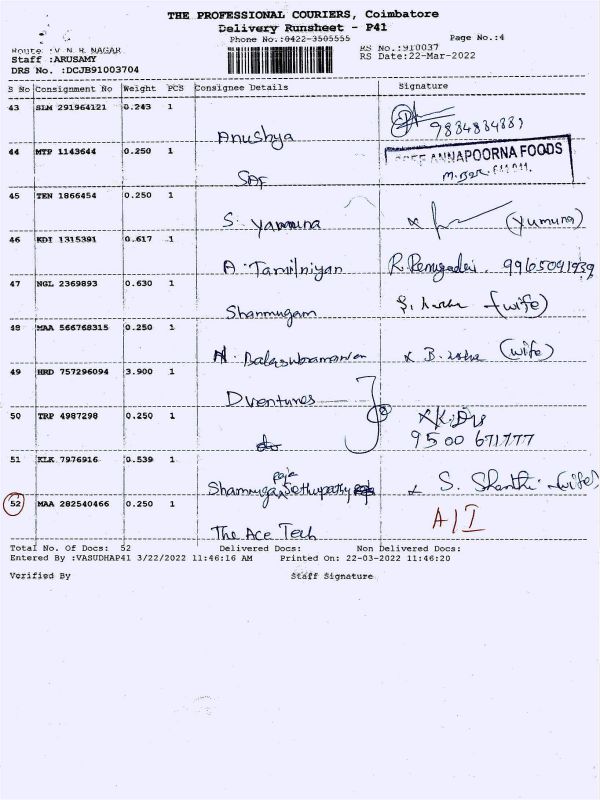 THE PROFESSIONAL COURIERS, Coimbatore
Delivery Runsheet - P41
Phone No.:0422-3505555 Page No.:4
Route :V N R NAGAR RS No.:910037
Staff :ARUSAMY RS Date:22-Mar-2022
DRS No. :DCJB91003704
S No Consignment No Weight PCS Consignee Details Signature
43 SLM 291964121 0.243 1
Anushya 9884884889
44 MTP 1143644 0.250 1 ANNAPOORNA FOODS
SAF
45 TEN 1866454 0.250 1
S. Yamuna (Yumuna)
46 KDI 1315391 0.617 1
A. Tamilniyan R. Renugadevi. 9965091939
47 NGL 2369893 0.630 1
Shanmugam (wife)
48 MAA 566768315 0.250 1
Balasubramanian B. (wife)
49 HRD 757296094 3.900 1
Dventunes
50 TRP 4987298 0.250 1
9500 671777
51 KLK 7976916 0.539 1
Shanmuga raja Sethupathy S. Shanthi (wife)
52 MAA 282540466 0.250 1 A/I
The Ace Tech
Total No. Of Docs: 52 Delivered Docs: Non Delivered Docs:
Entered By :VASUDHAP41 3/22/2022 11:46:16 AM Printed On: 22-03-2022 11:46:20
Verified By Staff Signature